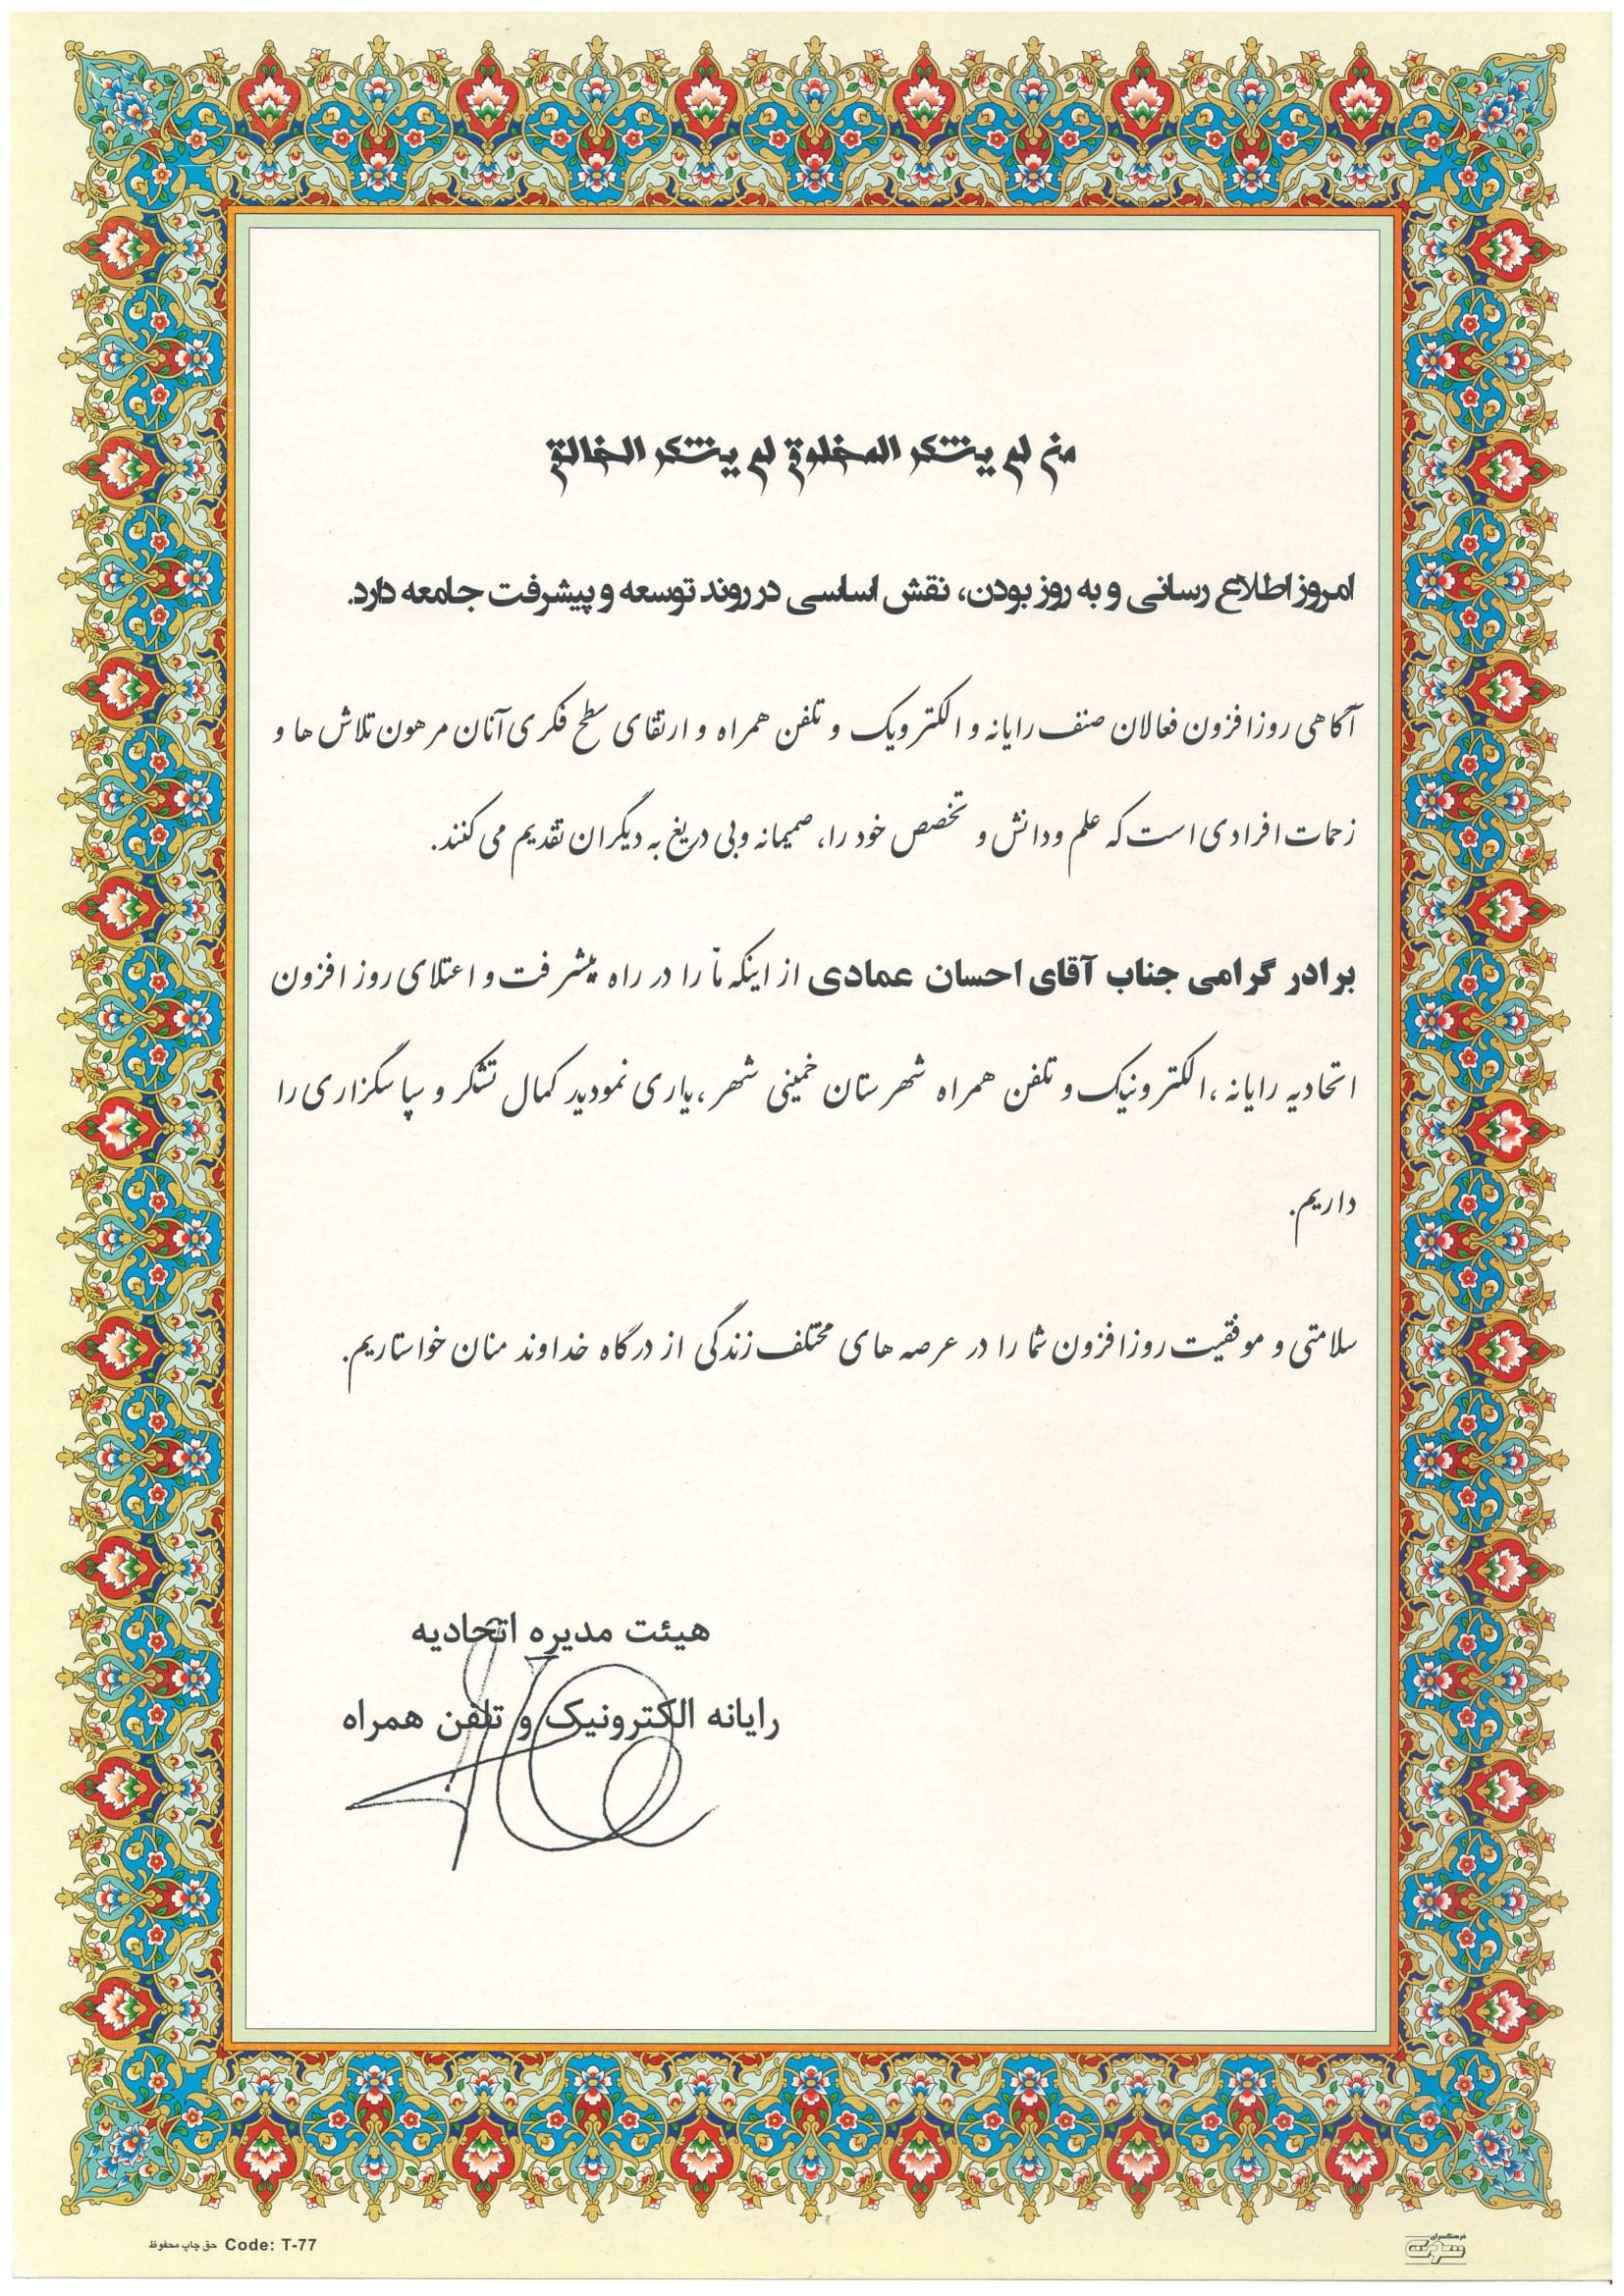 من لم يشكر المخلوق لم يشكر الخالق
امروز اطلاع رسانی و به روز بودن، نقش اساسی در روند توسعه و پیشرفت جامعه دارد.
آگاهی روزافزون فعالان صنف رایانه و الکترویک و تلفن همراه و ارتقای سطح فکری آنان مرهون تلاش ها و
زحمات افرادی است که علم ودانش و تخصص خود را، صمیمانه وبی دریغ به دیگران تقدیم می کنند.
برادر گرامی جناب آقای احسان عمادی از اینکه ما را در راه پیشرفت و اعتلای روز افزون
اتحادیه رایانه ،الکترونیک و تلفن همراه شهرستان خمینی شهر ،یاری نمودید کمال تشکر و سپاسگزاری را
داریم.
سلامتی و موفقیت روزافزون شما را در عرصه های مختلف زندگی از درگاه خداوند منان خواستاریم.
هیئت مدیره اتحادیه
رایانه الکترونیک و تلفن همراه
Code: T-77 حق چاپ محفوظ
فرهنگسرای